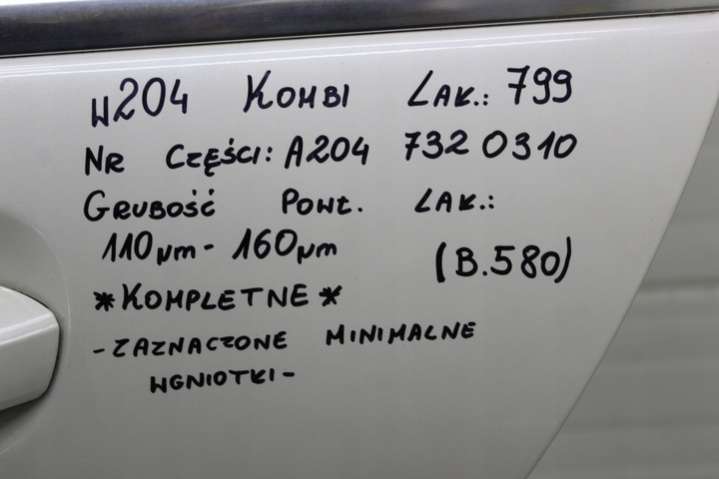 W204 KOMBI LAK.: 799
NR CZĘŚCI: A204 732 0310
GRUBOŚĆ POWŁ. LAK.:
110µm - 160µm (B.580)
*KOMPLETNE*
- ZAZNACZONE MINIMALNE
WGNIOTKI -